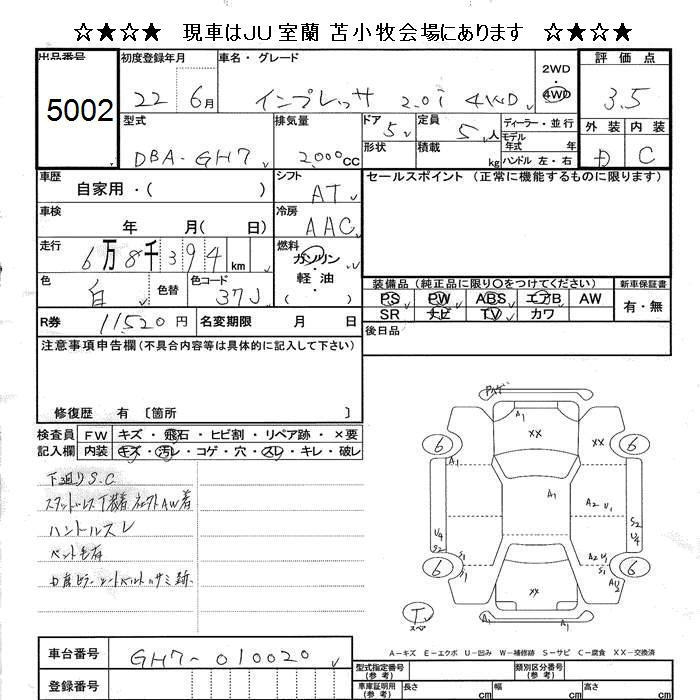 ☆★☆★ 現車はJU室蘭 苫小牧会場にあります ☆★☆★
出品番号 初度登録年月 車名・グレード 評価点
5002 22 6月 インプレッサ 2.0i 4WD 2WD 4WD 3.5
型式 排気量 ドア 5 定員 5人 ディーラー・並行 外装 内装
DBA-GH7 2,000cc 形状 積載 kg モデル年式 年 ハンドル 左・右 C
車歴 自家用・( ) シフト AT セールスポイント (正常に機能するものに限ります)
車検 年 月(日) 冷房 AAC
走行 6万8千394km 燃料 ガソリン・軽油
色 白 色替 色コード 37J
装備品 (純正品に限り〇をつけてください) 新車保証書
PS PW ABS エアB AW 有・無
SR ナビ TV カワ
R券 11,520円 名変期限 月 日 後日品
注意事項申告欄(不具合内容等は具体的に記入して下さい)
修復歴 有 〔箇所 〕
検査員 FW キズ・飛石・ヒビ割・リペア跡・×要
記入欄 内装 キズ・汚レ・コゲ・穴・スレ・キレ・破レ
下廻りS.C
ハンドルスレ
ペット毛有
パイザー
A1
XX XX
6 6
A1 A1 A2 U1
U4 S2 S2 U4
S1 S1 A2 U1 S1
6 6
XX AU2
T スペア A1 A1
A−キズ E−エクボ U−凹み W−補修跡 S−サビ C−腐食 XX−交換済
車台番号 GH7-010020 型式指定番号(参考) 類別区分番号(参考)
登録番号 車庫証明用(参考) 長さ cm 幅 cm 高さ cm